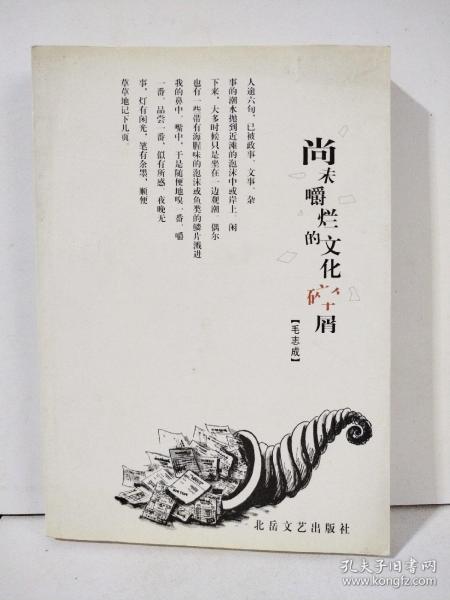 尚未嚼烂的文化碎屑
【毛志成】
人逾六旬，已被政事、文事、杂
事的潮水抛到近滩的泡沫中或岸上，闲
下来，大多时候只是坐在一边观潮。偶尔
也有一些带有海腥味的泡沫或鱼类的鳞片溅进
我的鼻中、嘴中，于是随便地嗅一番、嚼
一番、品尝一番，似有所感。夜晚无
事，灯有闲光，笔有余墨，顺便
草草地记下几页。
北岳文艺出版社
孔夫子旧书网
kongfz.com